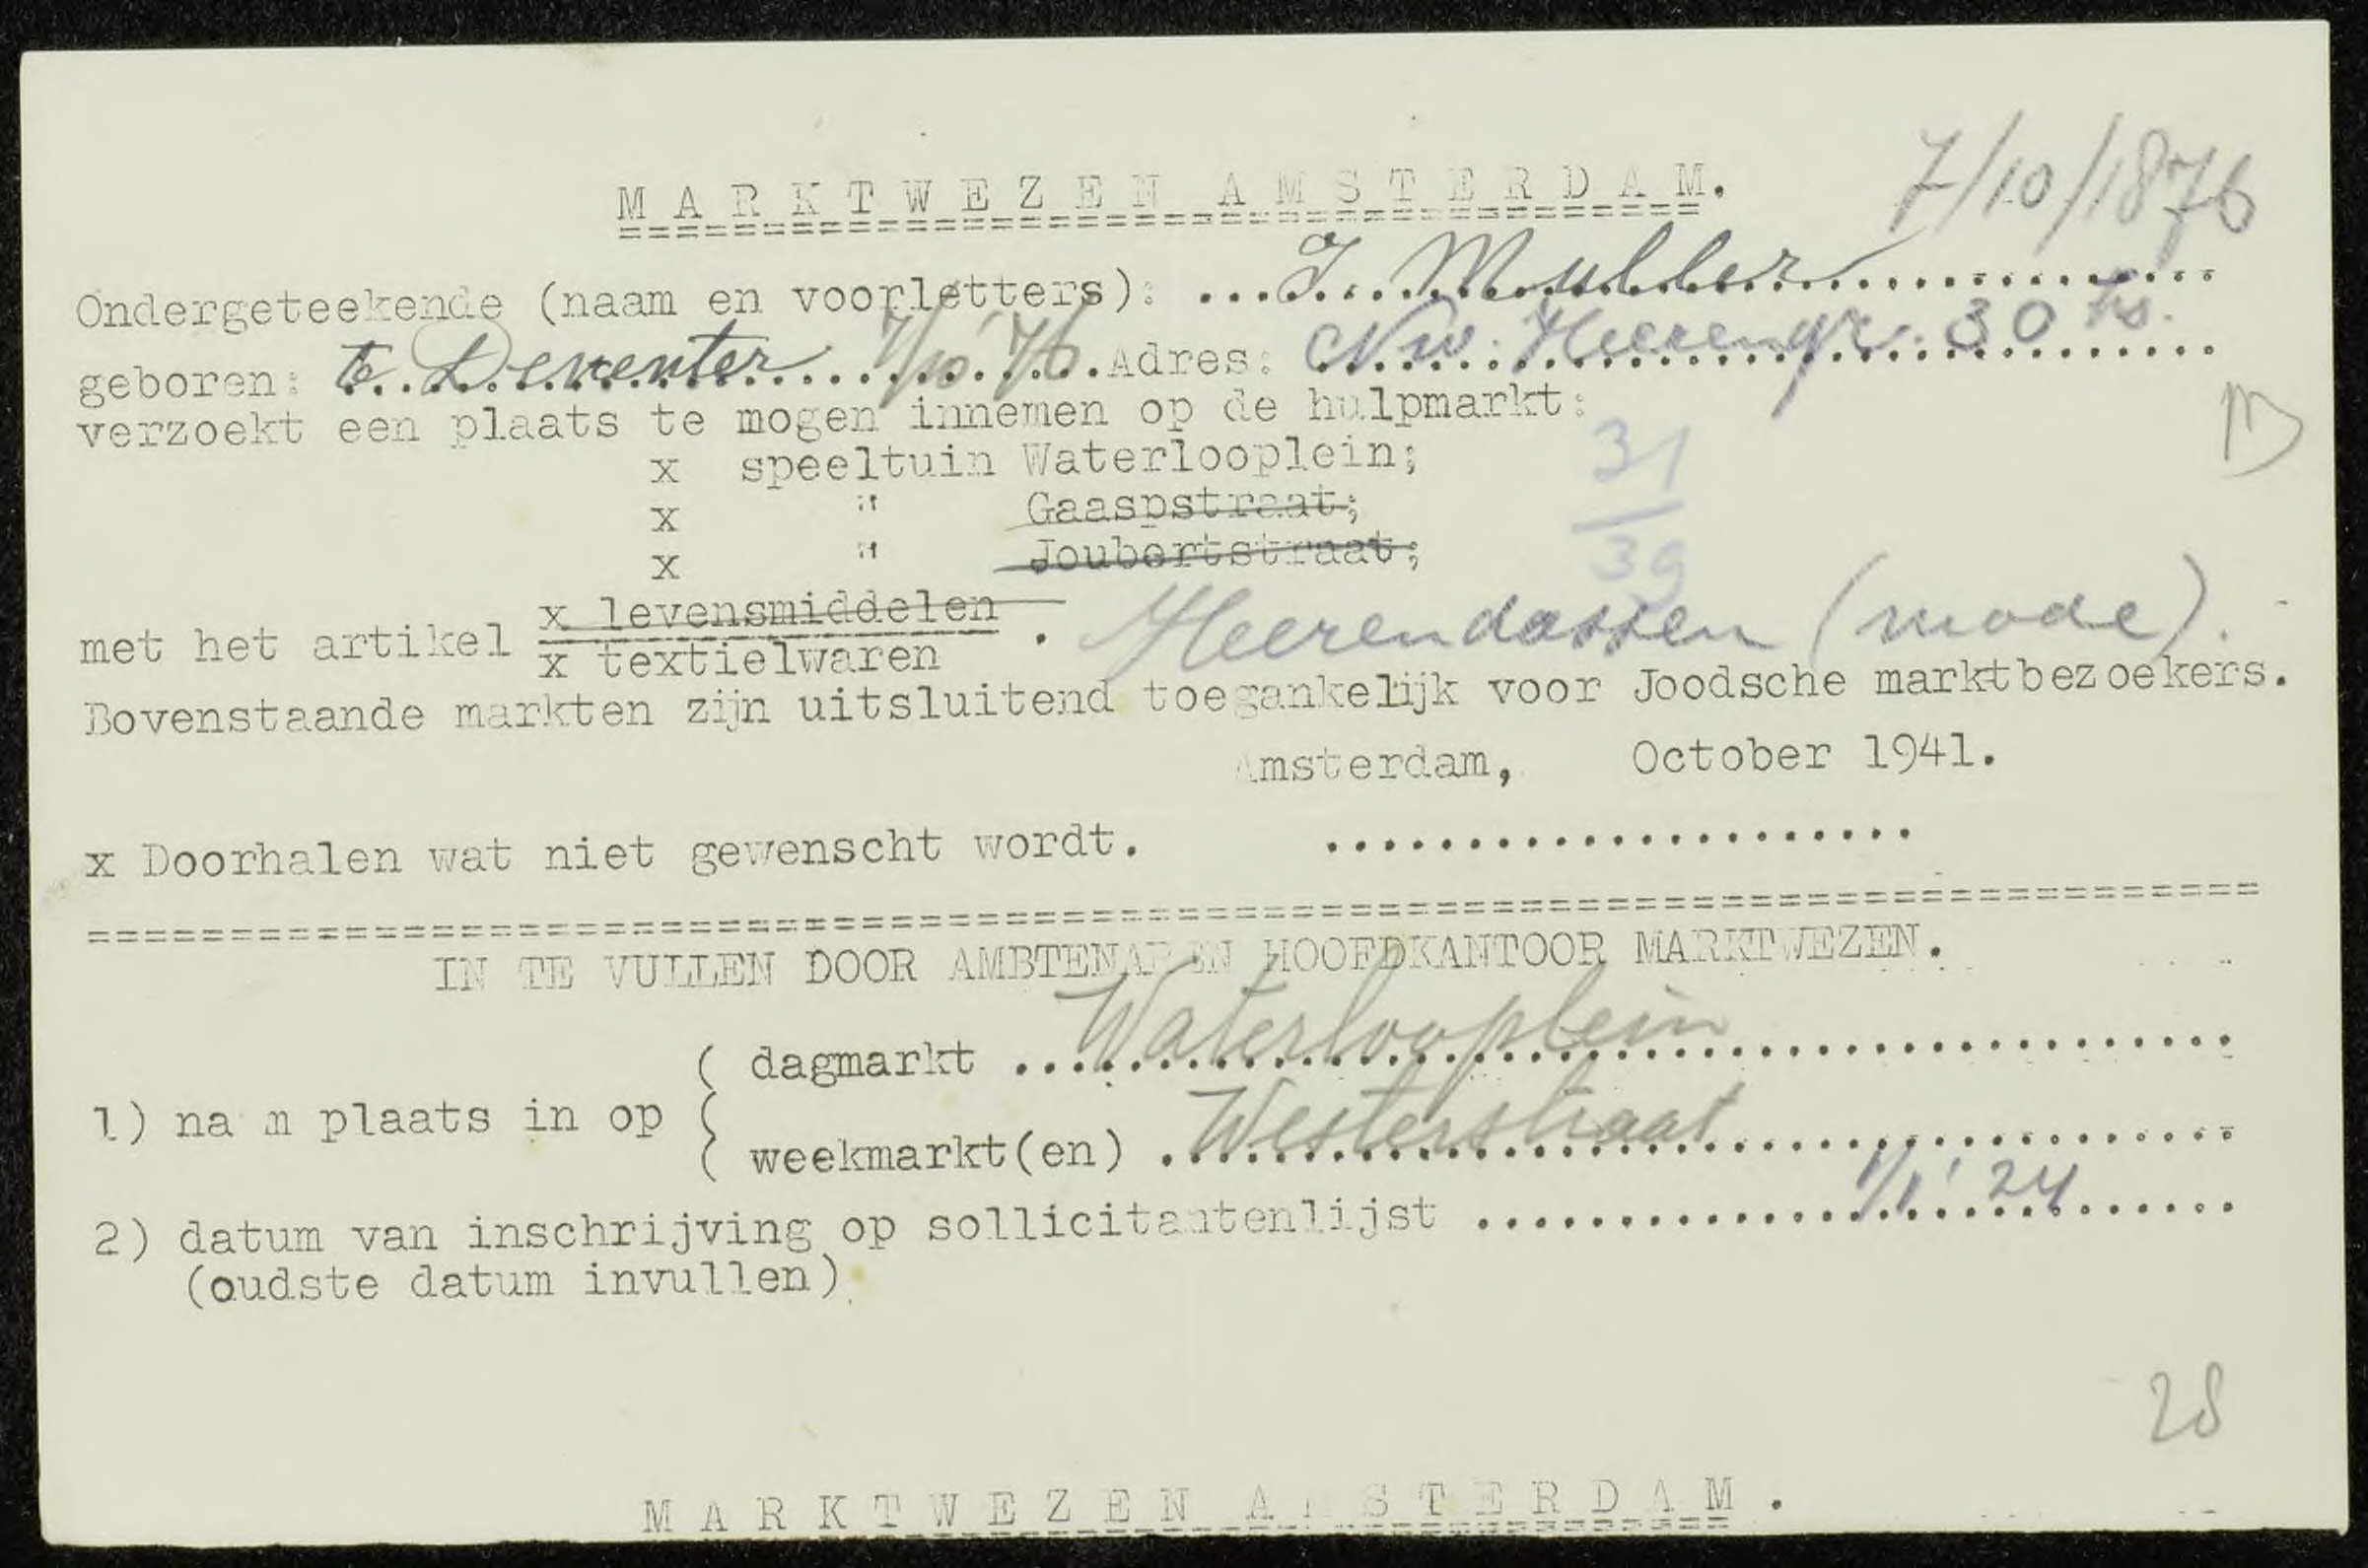 7/10/1876
MARKTWEZEN AMSTERDAM.
Ondergeteekende (naam en voorletters): ...J. Muller...
geboren: te Deventer 7/10 '76. Adres: Nw. Heerengr. 30 hs.
verzoekt een plaats te mogen innemen op de hulpmarkt:
x speeltuin Waterlooplein;
x " Gaaspstraat;
x " Joubertstraat;
31
39
x levensmiddelen
met het artikel . Heerendassen (mode).
x textielwaren
Bovenstaande markten zijn uitsluitend toegankelijk voor Joodsche marktbezoekers.
Amsterdam, October 1941.
x Doorhalen wat niet gewenscht wordt. .....................
IN TE VULLEN DOOR AMBTENAREN HOOFDKANTOOR MARKTWEZEN.
( dagmarkt ...Waterlooplein...
1) nam plaats in op (
( weekmarkt(en) .Westerstraat...
2) datum van inschrijving op sollicitantenlijst ...1/1 '24...
(oudste datum invullen)
28
MARKTWEZEN AMSTERDAM.